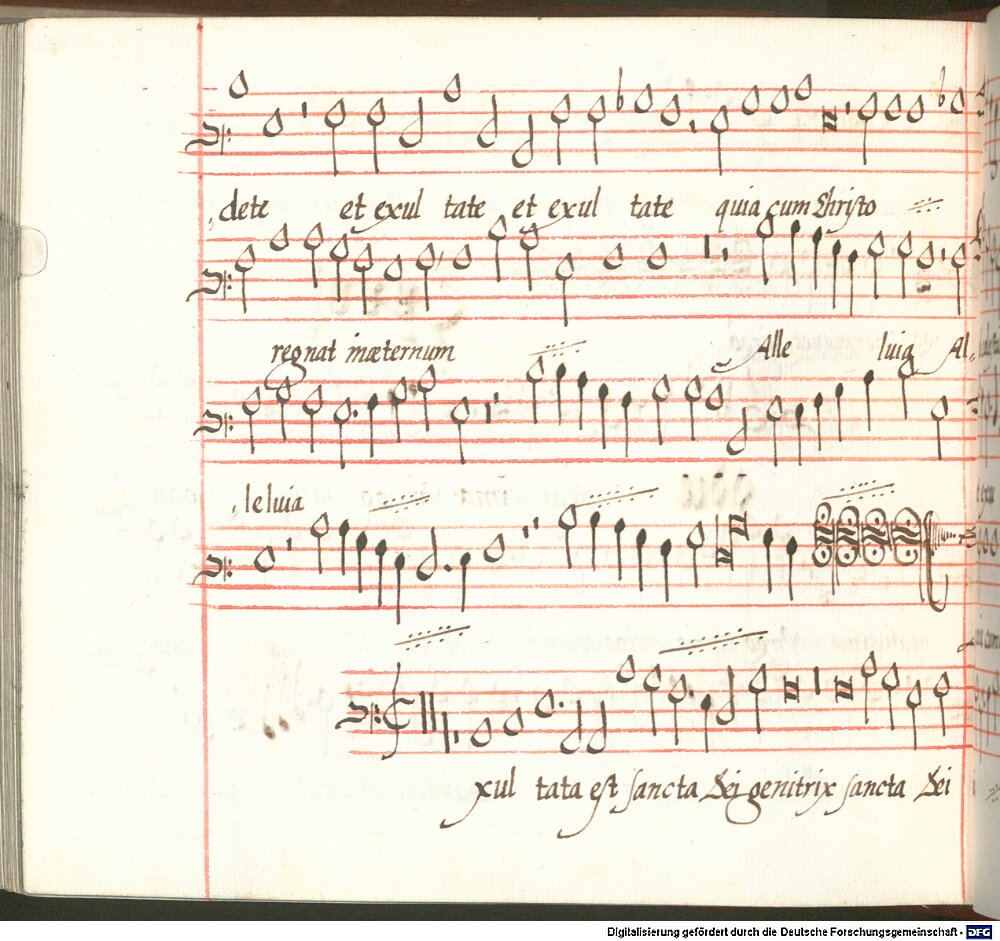 dete et exul tate et exul tate quia cum Christo
regnat inæternum Alle luia Al,
,leluia
xul tata est sancta Dei genitrix sancta Dei
Digitalisierung gefördert durch die Deutsche Forschungsgemeinschaft - DFG